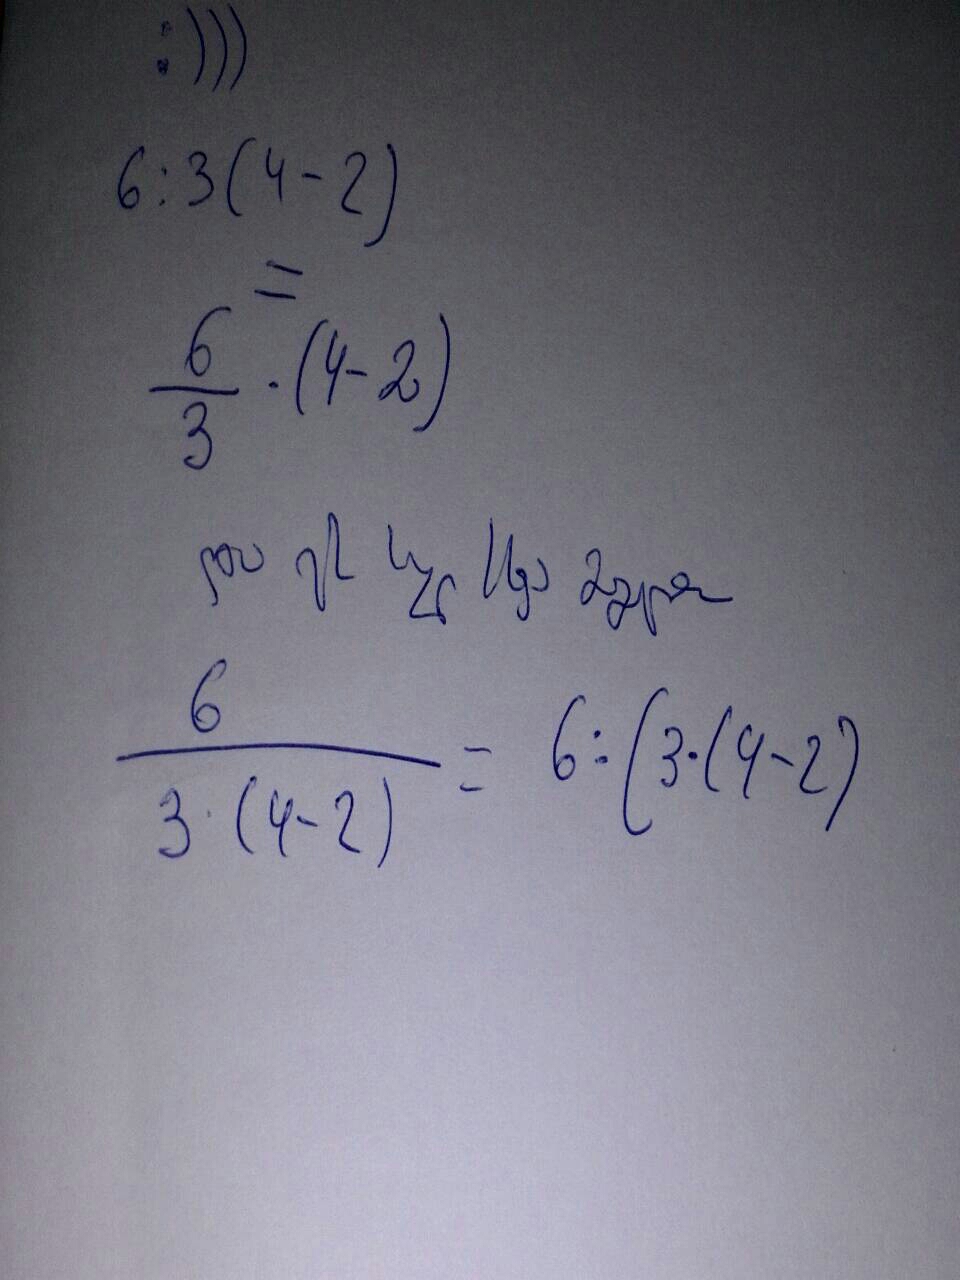 :)))
6:3(4-2)
=
6
3 · (4-2)
6
3·(4-2) = 6:(3·(4-2)